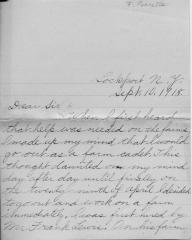 Lockport N. Y.
Sept. 10, 1918.
Dear Sir:
When I first heard
that help was needed on the farms
I made up my mind that I would
go out as a farm cadet. This
thought daunted on my mind
day after day until finally on
the twenty-ninth of April I decided
to go out and work on a farm
immediately. I was first hired by
Mr. Frank Lewis. On his farm